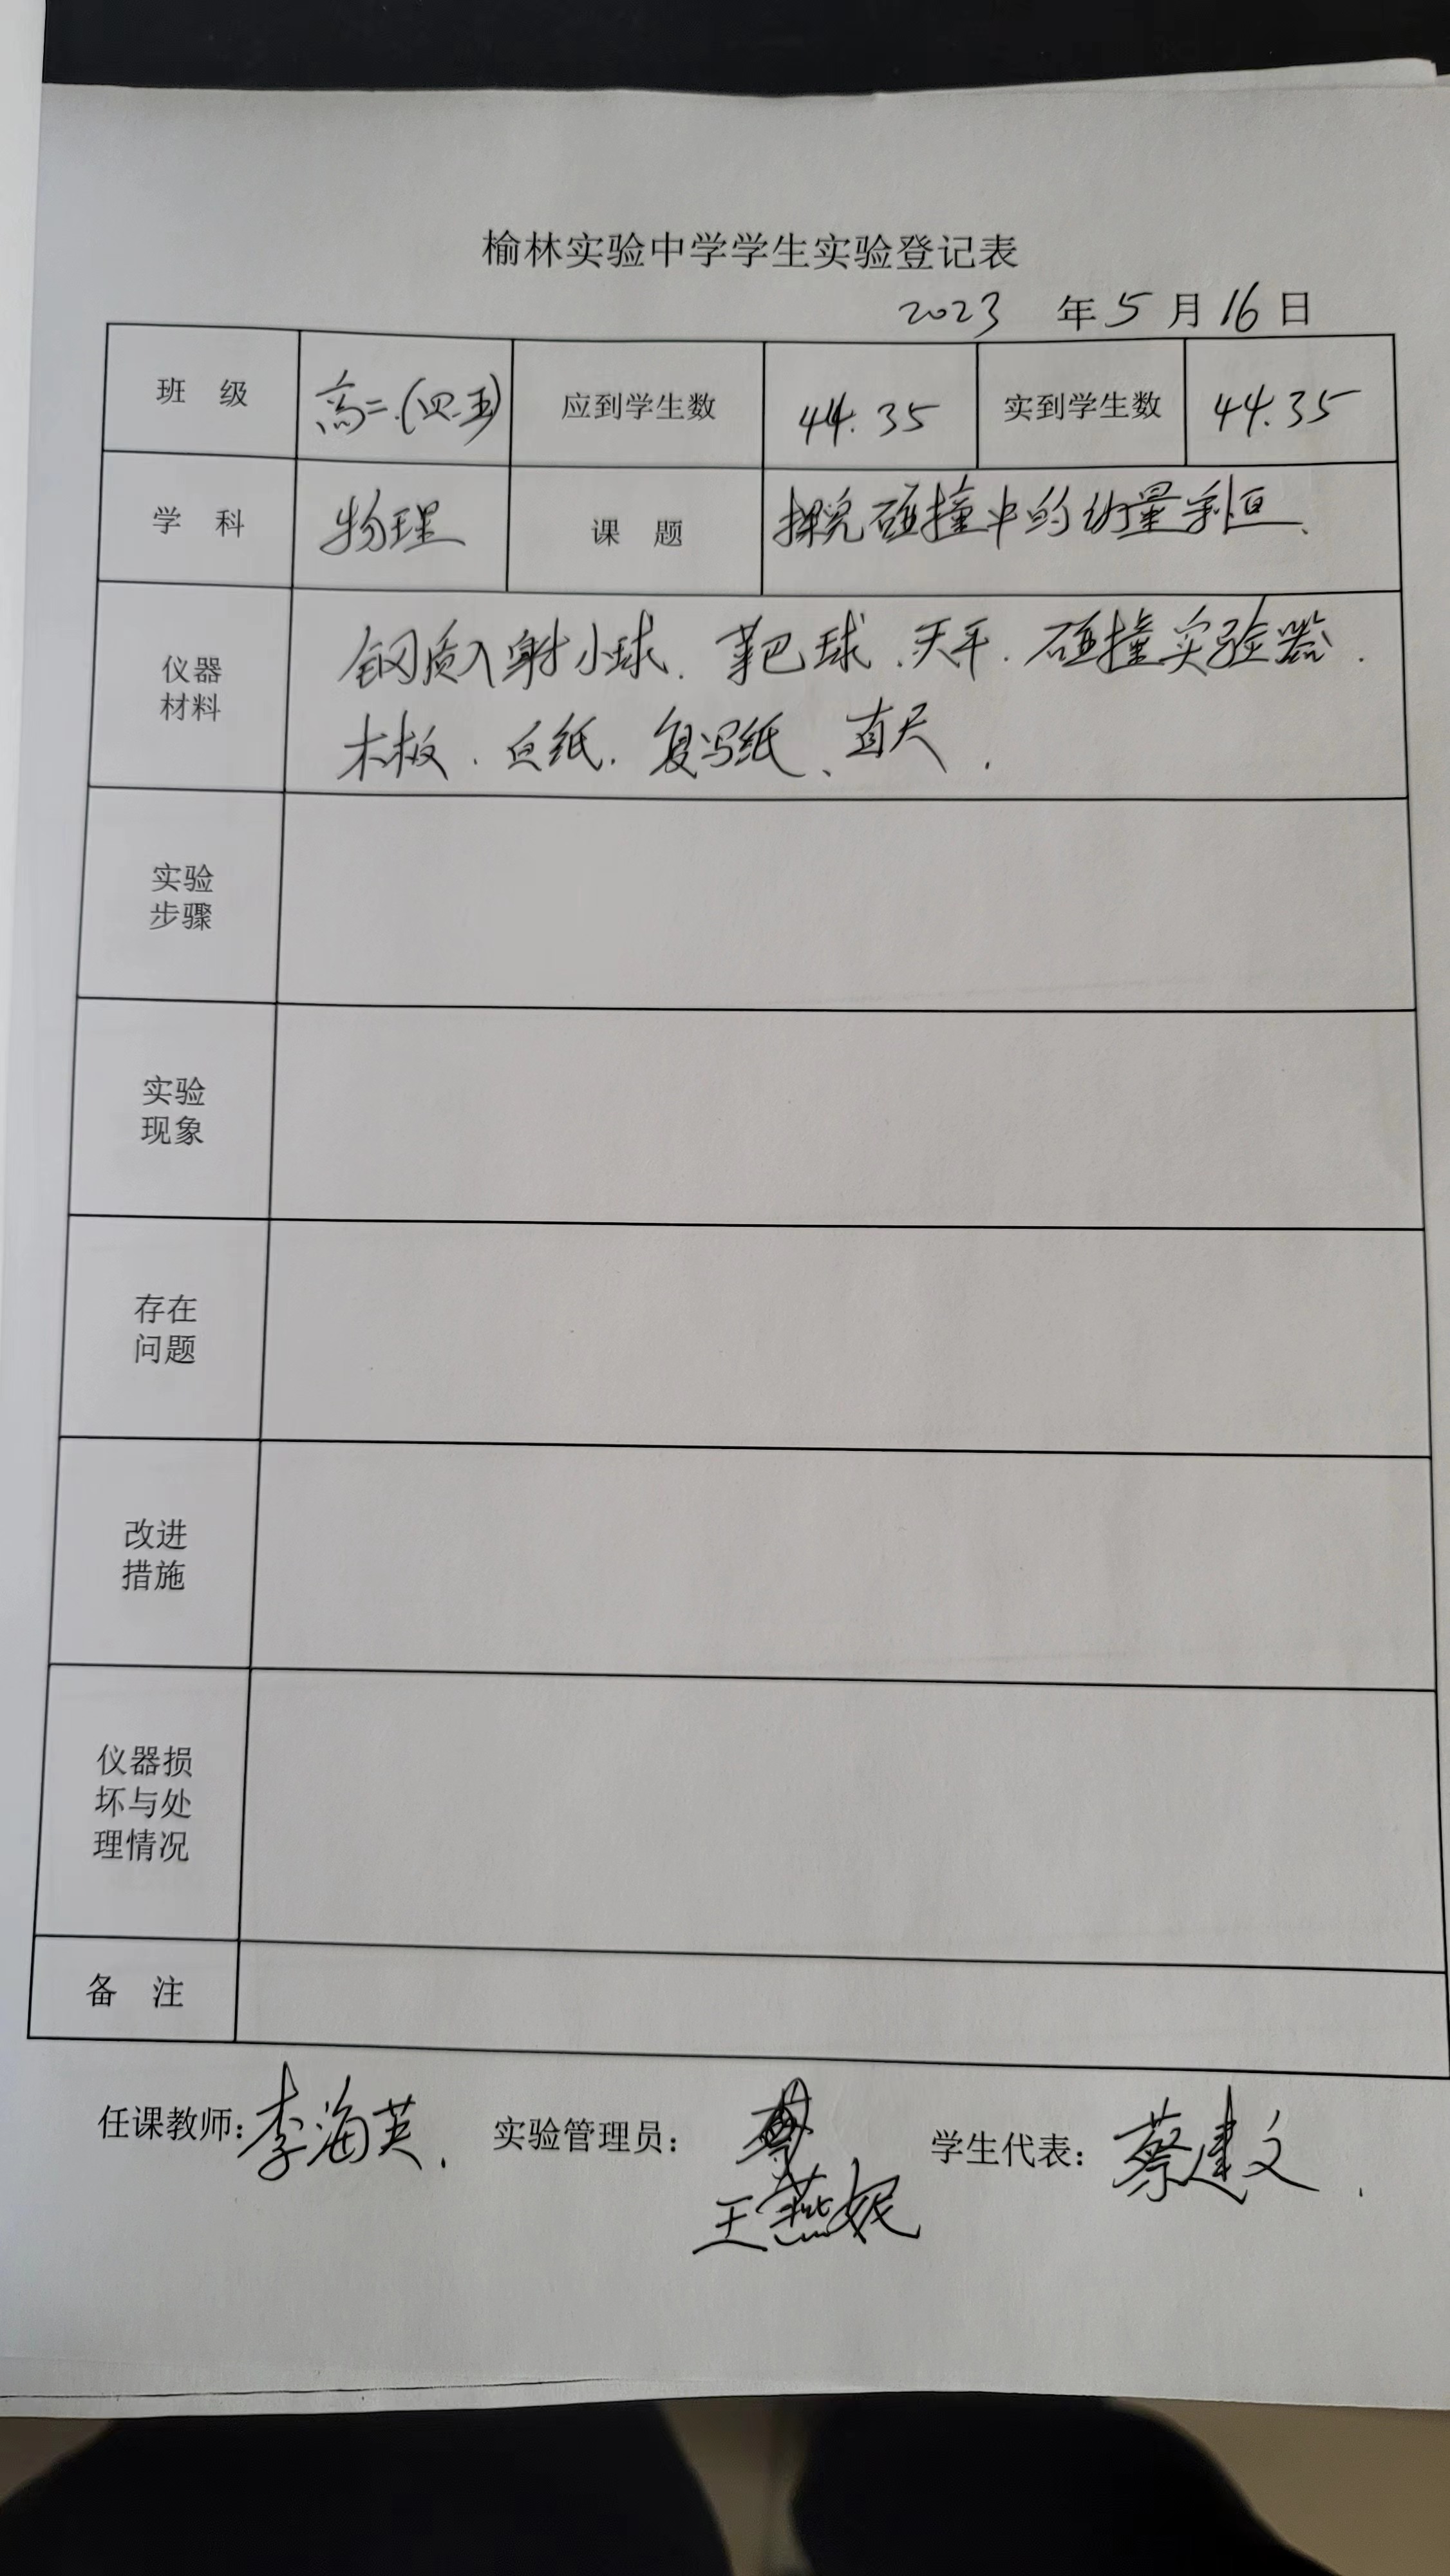 榆林实验中学学生实验登记表
2023 年 5 月 16 日
班 级 高二.(四.五) 应到学生数 44. 35 实到学生数 44. 35
学 科 物理 课 题 探究碰撞中的动量守恒、
仪器材料 钢质入射小球. 靶球.天平.碰撞实验器.
木板.白纸.复写纸、直尺.
实验
步骤
实验
现象
存在
问题
改进
措施
仪器损
坏与处
理情况
备 注
任课教师:李海英. 实验管理员: 学生代表:蔡建文.
王燕妮